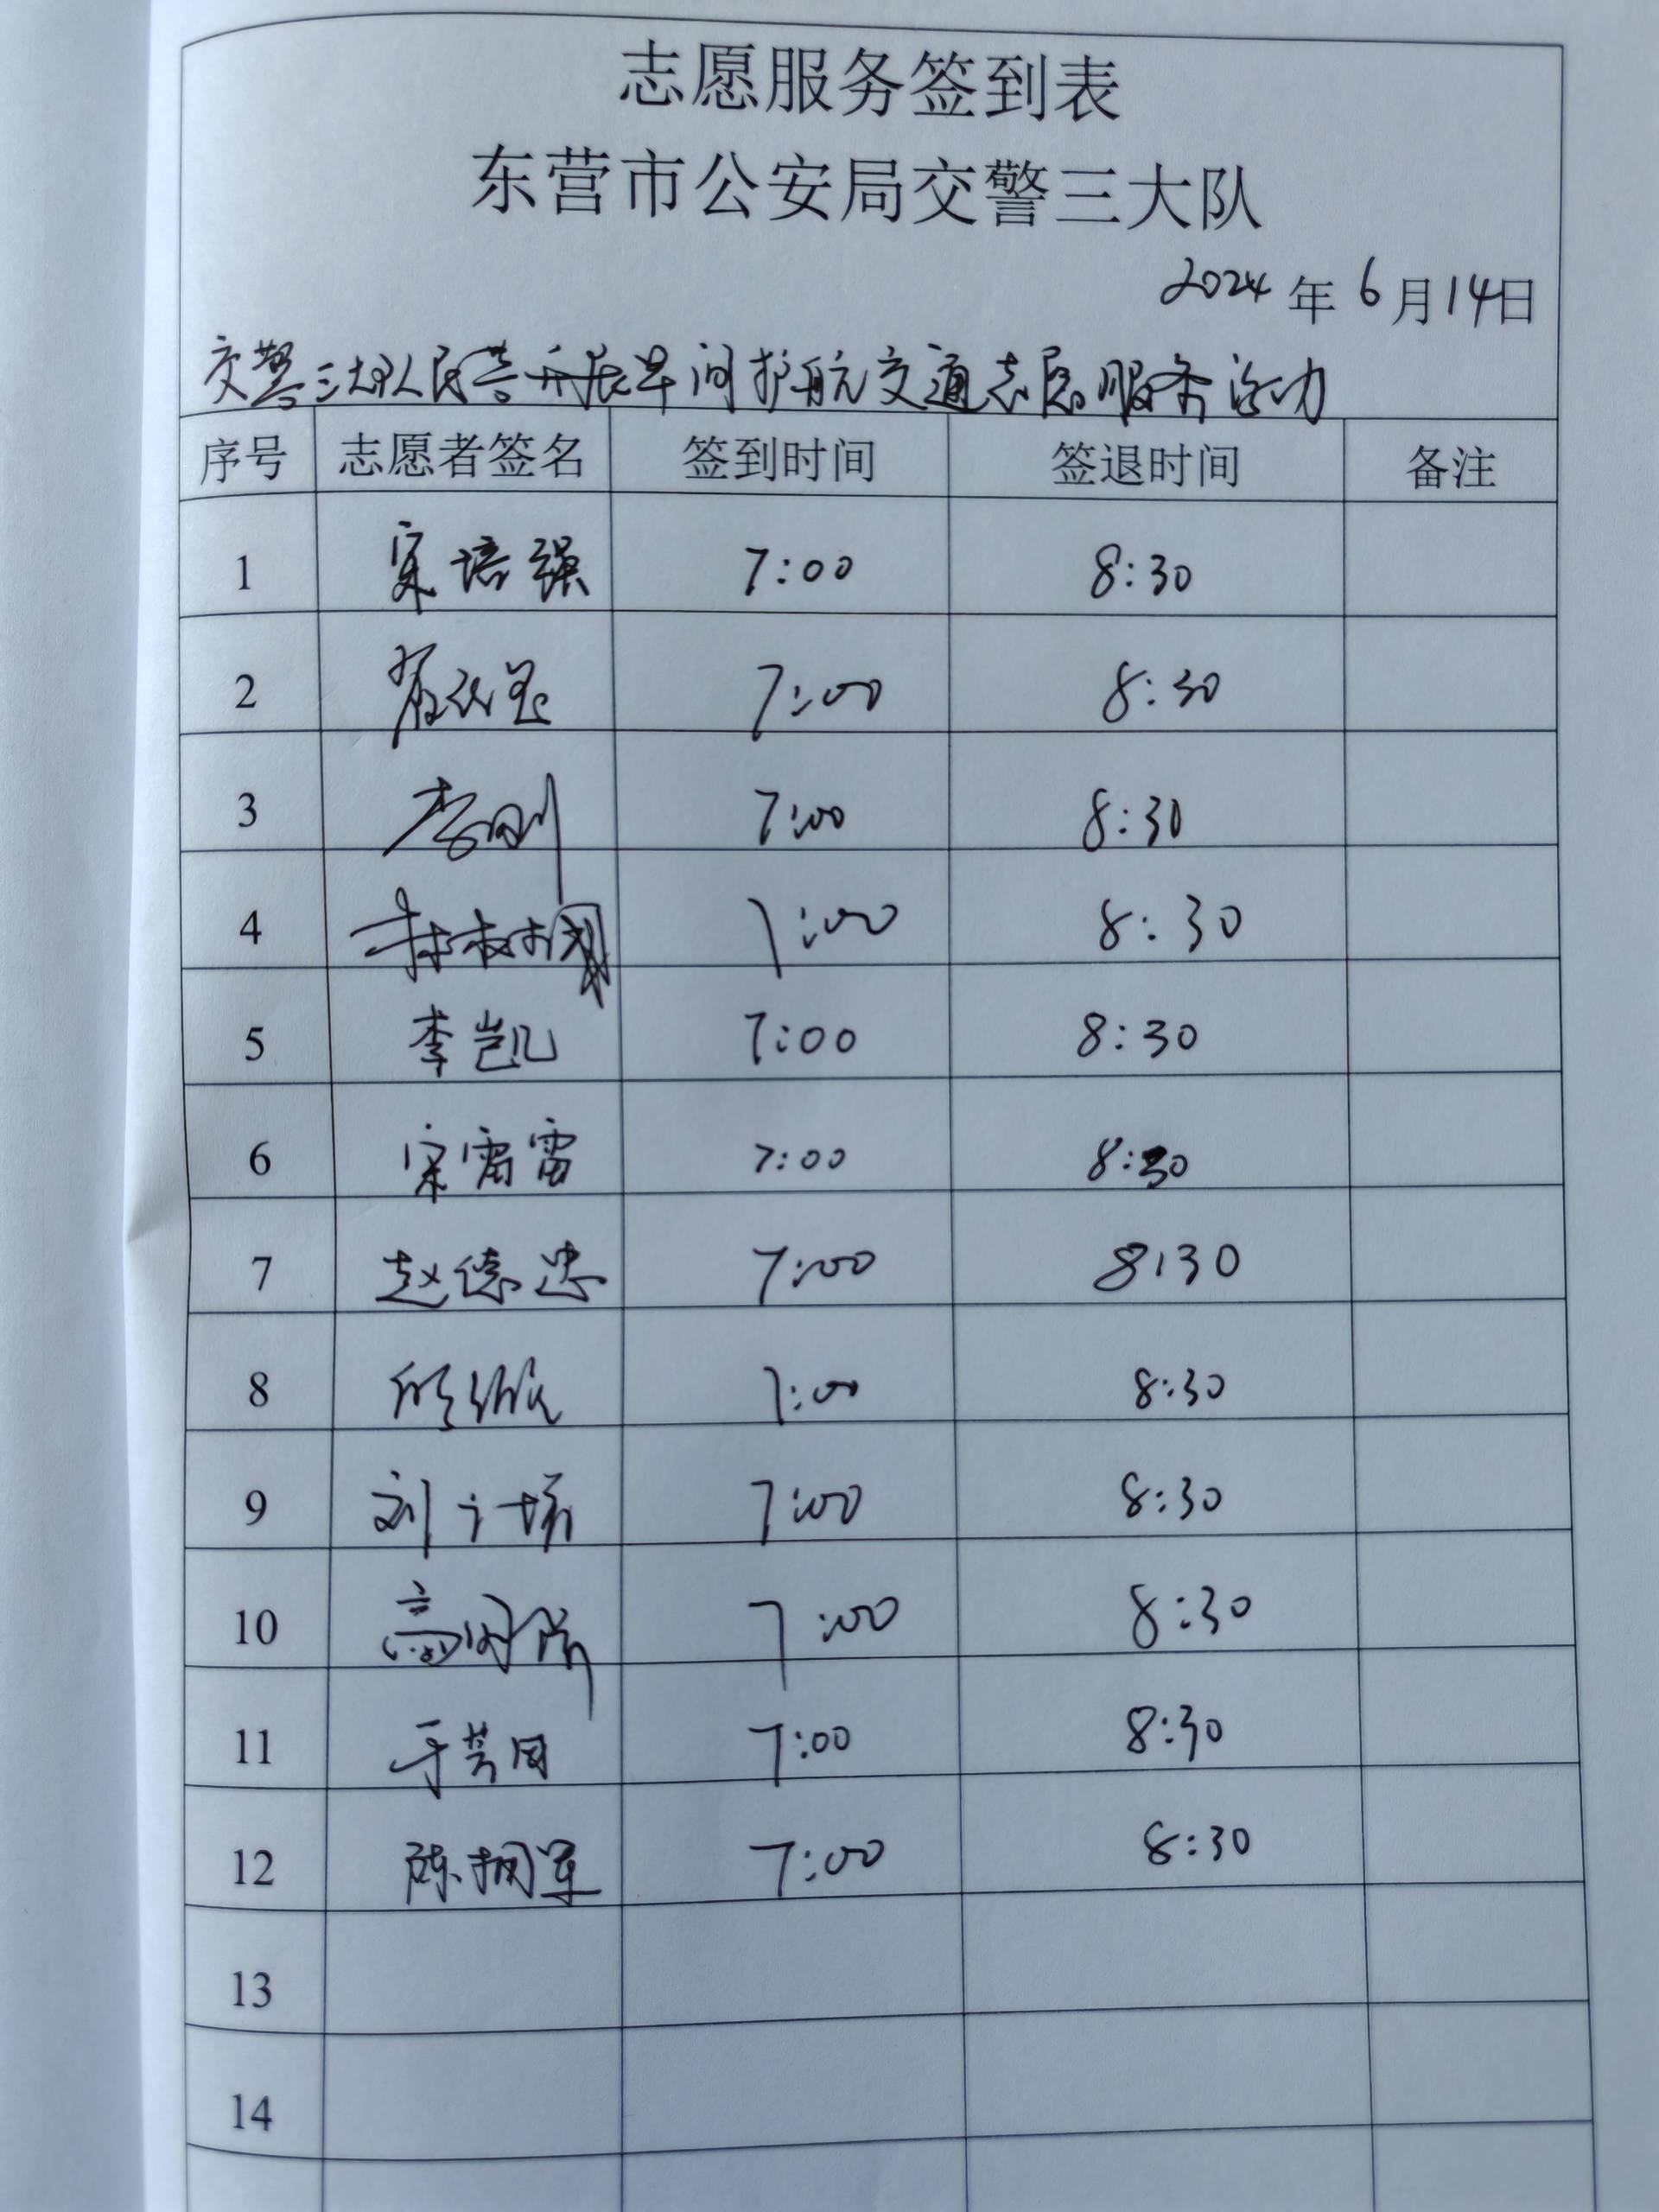 志愿服务签到表
东营市公安局交警三大队
2024年6月14日
交警三大队民营开展早间护航交通志愿服务活力
序号 志愿者签名 签到时间 签退时间 备注
1 宋培强 7:00 8:30
2 7:00 8:30
3 李刚 7:00 8:30
4 林树国 7:00 8:30
5 李凯 7:00 8:30
6 宋雷雷 7:00 8:30
7 赵德忠 7:00 8:30
8 7:00 8:30
9 刘 7:00 8:30
10 高 7:00 8:30
11 7:00 8:30
12 陈拥军 7:00 8:30
13
14